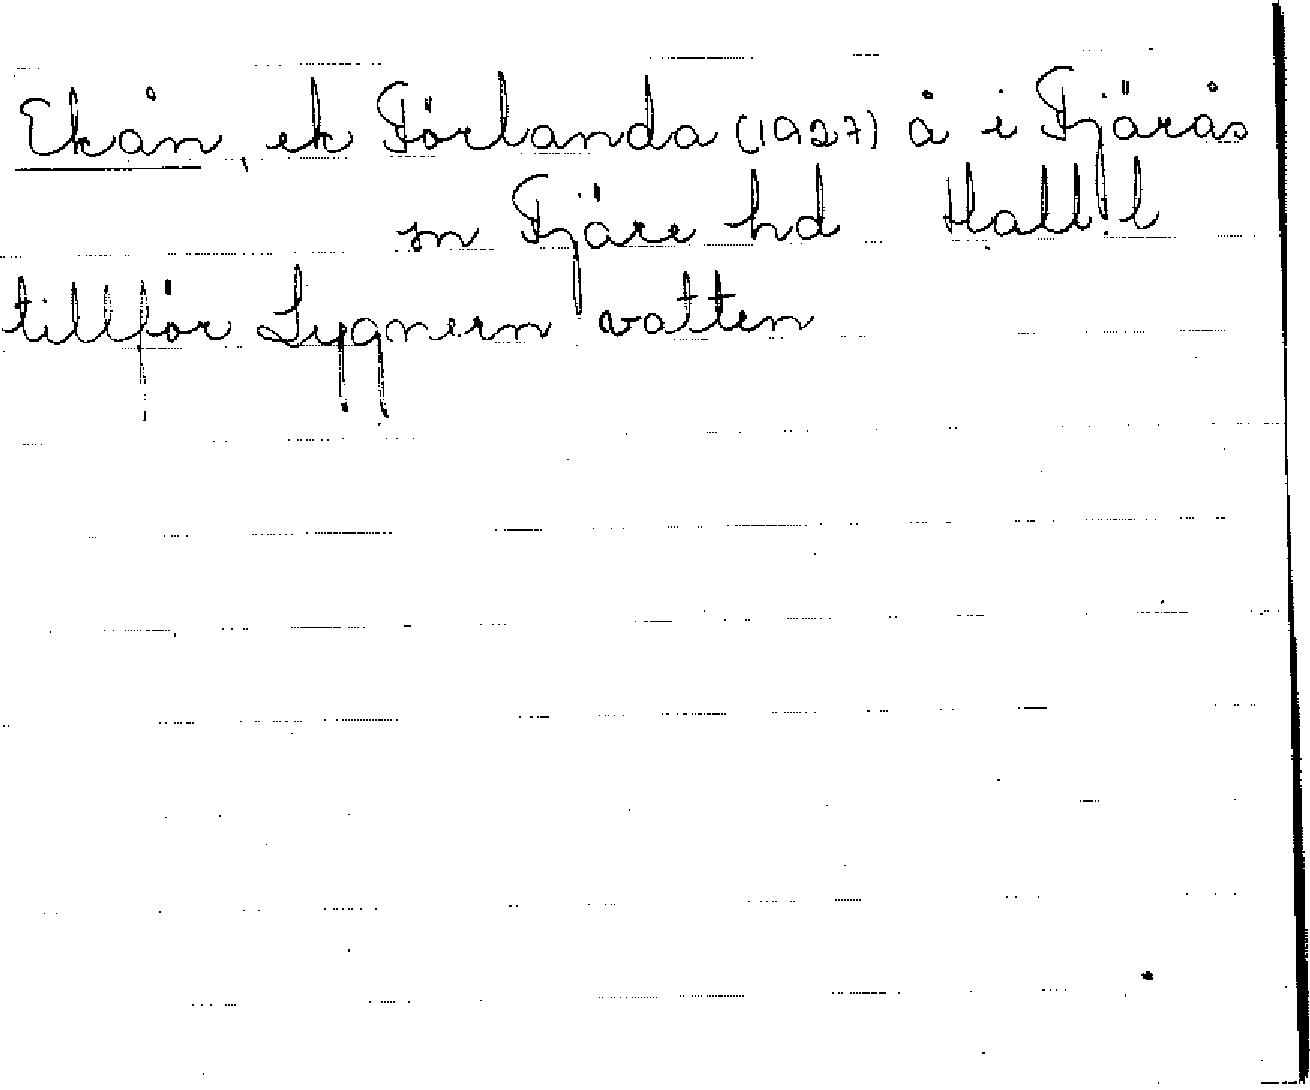 Ekån, ek Förlanda (1927) å i Fjärås
sn Fjäre hd Hall. l
tillför Lygnern vatten